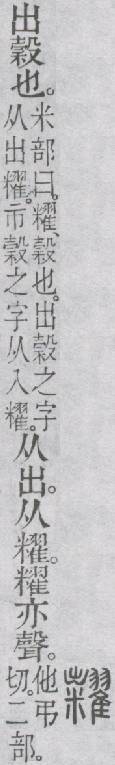 出穀也。
米部曰。糴、穀也。出穀之字
从出糴。市穀之字从入
糴。
从出。从糴。糴亦聲。
他弔
切。二部。